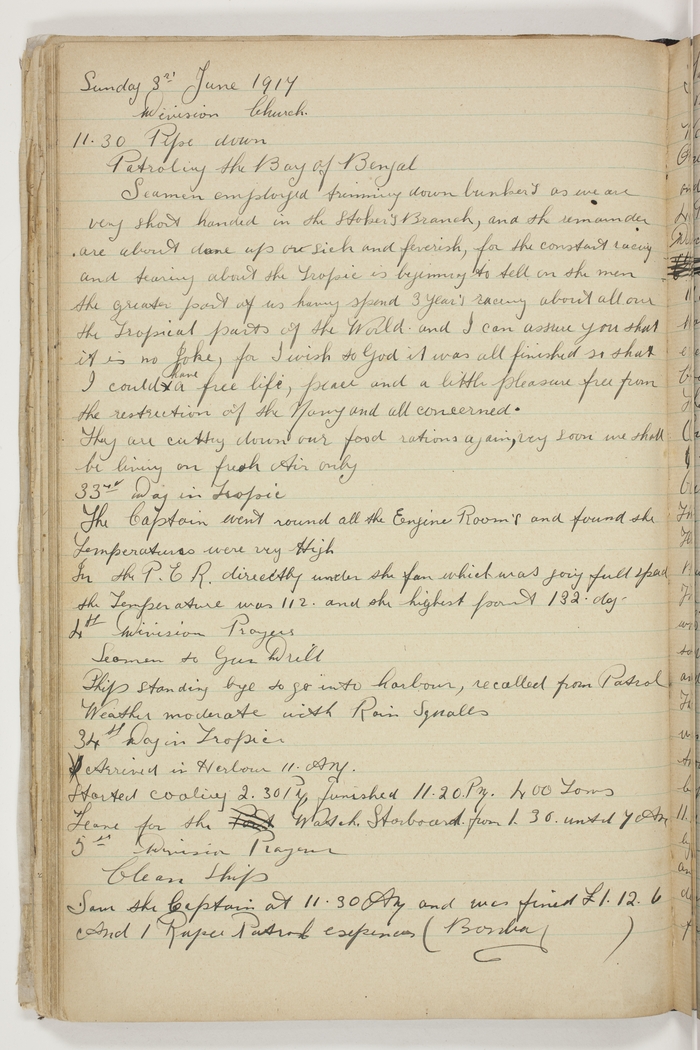 Sunday 3rd June 1917
Division Church.
11.30 Pipe down
Patroling the Bay of Bengal
Seamen employed trimming down bunker's as we are
very short handed in the Stoker's Branch, and the remainder
are about done up or sick and feverish, for the constant racing
and tearing about the Tropic is beginning to tell on the men
the greater part of us having spend 3 year's racing about all over
the Tropical parts of the World. and I can assure you that
it is no Joke, for I wish to God it was all finished so that
I could have a free life, peace and a little pleasure free from
the restriction of the Navy and all concerned.
They are cutting down our food rations again, very soon we shall
be living on fresh Air only
33rd Day in Tropic
The Captain went round all the Engine Room's and found the
Temperatures were very High
In the P.E.R. directly under the fan which was going full speed
the Temperature was 112. and the highest point 132. deg.
4th Division Prayers
Seamen to Gun Drill
Ship standing bye to go into harbour, recalled from Patrol
Weather moderate with Rain Squalls
34th Day in Tropic
Arrived in Harbour 11. AM.
Started coaling 2.30 PM, finished 11.20 PM. 400 Tons
Leave for the Port Watch Starboard. from 1.30. until 7 AM
5th Division Prayers
Clean Ship
Saw the Captain at 11.30 AM and was fined £1.12.6
And 1 Rupee Patrol expences (
)